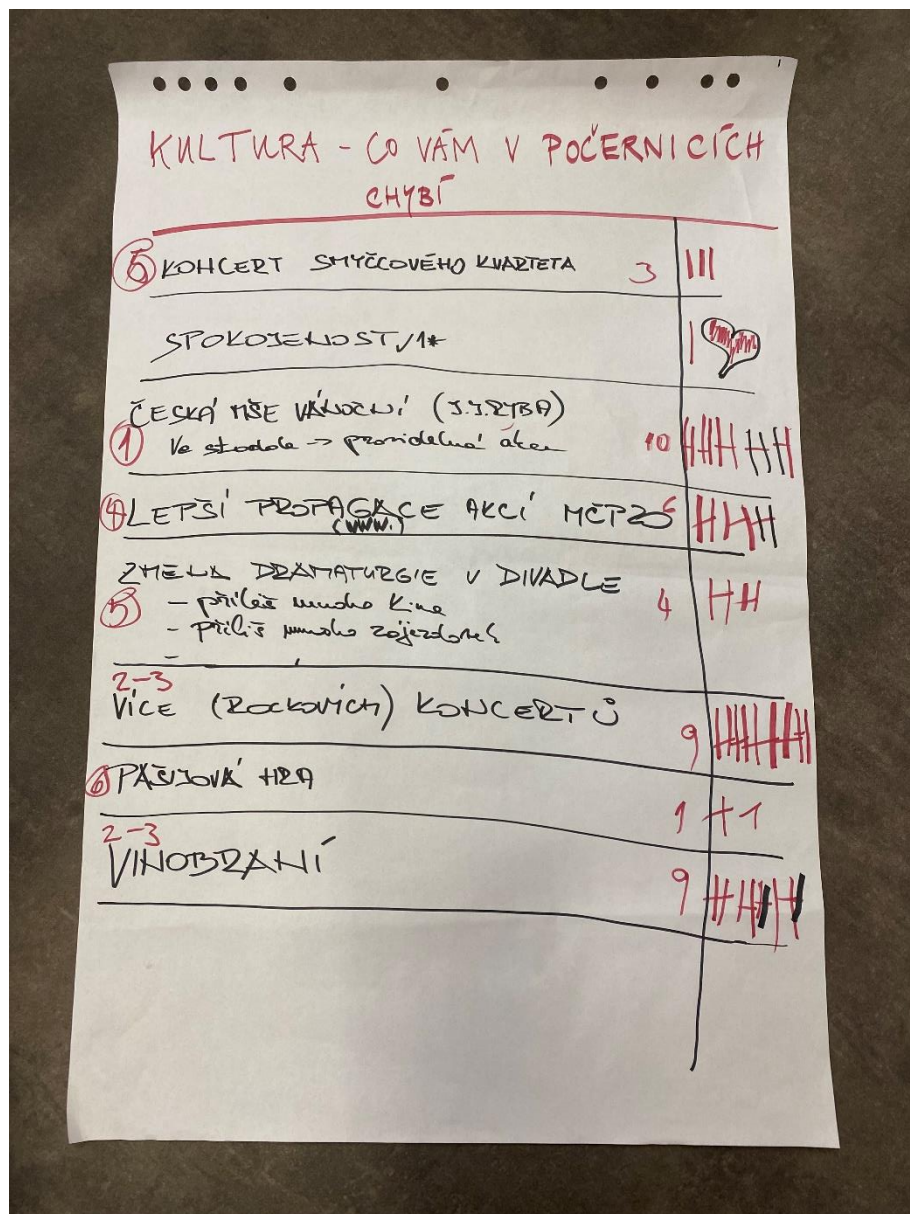 KULTURA - CO VÁM V POČERNICÍCH
CHYBÍ
5 KONCERT SMYČCOVÉHO KVARTETA 3
SPOKOJENOST /1*
ČESKÁ MŠE VÁNOČNÍ (J.J.RYBA)
1 Ve stodole → pravidelná akce 10
4 LEPŠÍ PROPAGACE AKCÍ MČP20 6
(WWW.)
ZMĚNA DRAMATURGIE V DIVADLE
- příliš mnoho kina 4
- příliš mnoho zájezdovek
-
2-3
VÍCE (ROCKOVÍCH) KONCERTŮ 9
6 PAŠIJOVÁ HRA 1 1
2-3
VINOBRANÍ 9